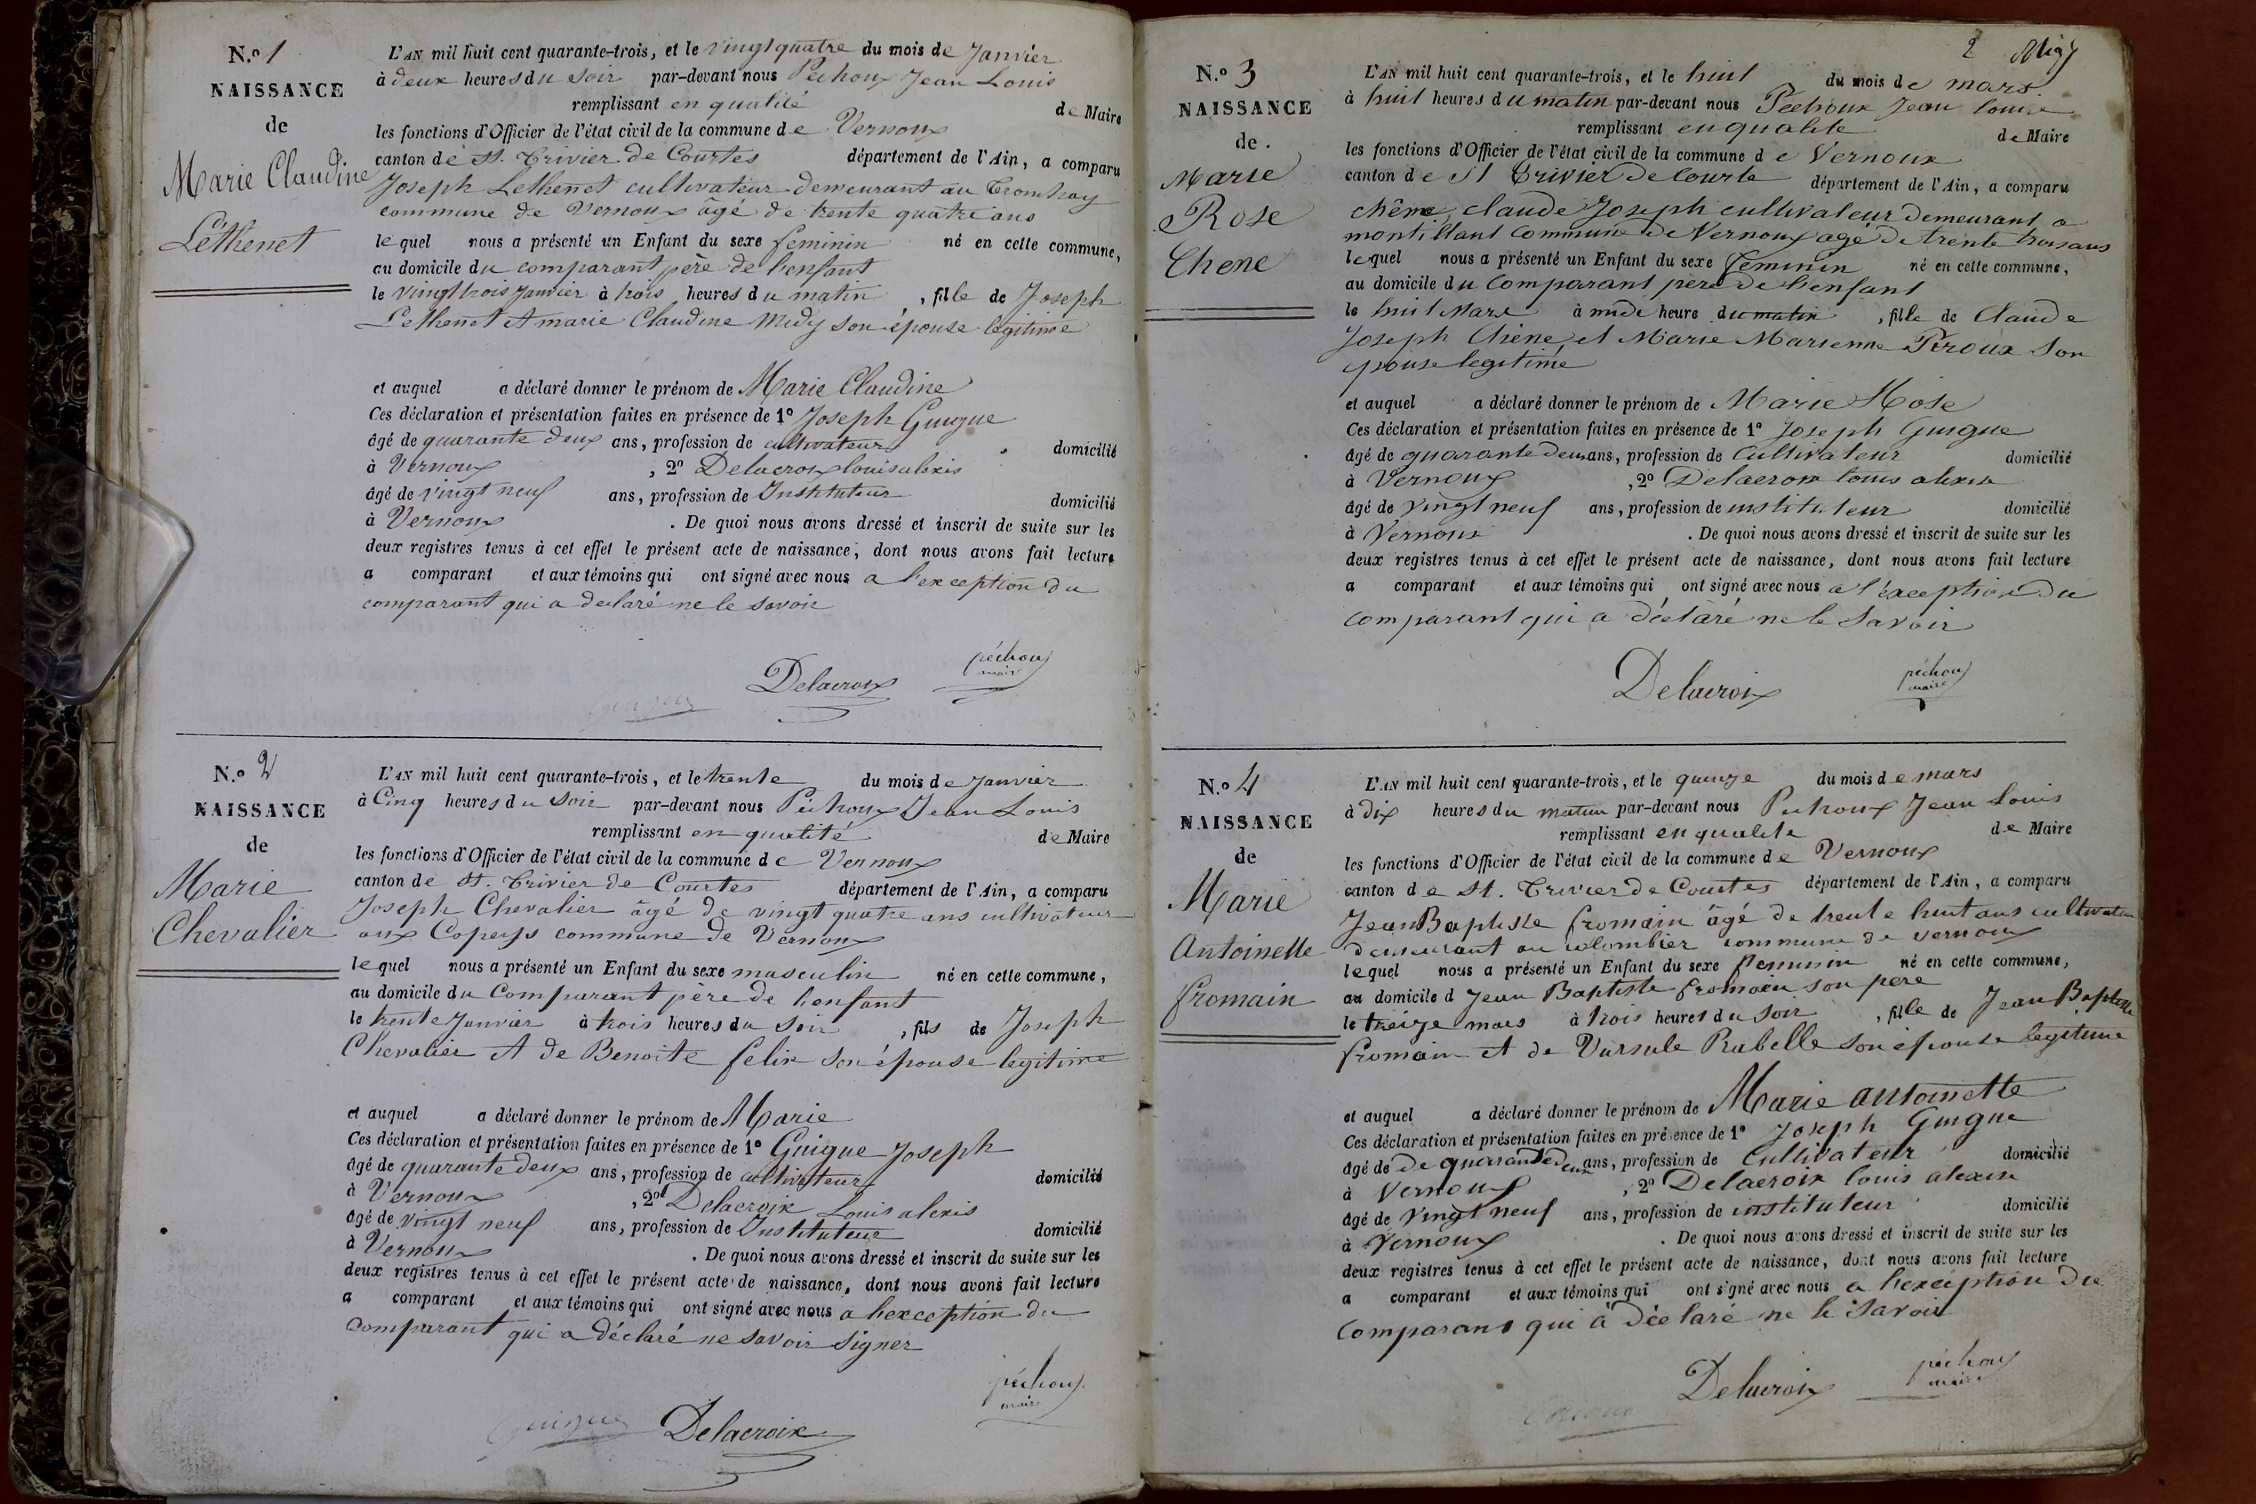 N.o 1
NAISSANCE
de
Marie Claudine
Lethenet
L'AN mil huit cent quarante-trois, et le vingt quatre du mois de Janvier
à deux heures du soir par-devant nous Pechoux Jean Louis
remplissant en qualité de Maire
les fonctions d'Officier de l'état civil de la commune de Vernoux
canton de St. Trivier de Courtes département de l'Ain, a comparu
Joseph Lethenet cultivateur demeurant au
commune de Vernoux âgé de trente quatre ans
lequel nous a présenté un Enfant du sexe feminin né en cette commune,
au domicile du comparant père de l'enfant
le vingt trois Janvier à trois heures du matin, fille de Joseph
Lethenet et marie Claudine Midy son épouse légitime
et auquel a déclaré donner le prénom de Marie Claudine
Ces déclaration et présentation faites en présence de 1o Joseph Guigue
âgé de quarante deux ans, profession de cultivateur domicilié
à Vernoux, 2o Delacroix louis alexis
âgé de vingt neuf ans, profession de Instituteur domicilié
à Vernoux. De quoi nous avons dressé et inscrit de suite sur les
deux registres tenus à cet effet le présent acte de naissance, dont nous avons fait lecture
a comparant et aux témoins qui ont signé avec nous a l'exception du
comparant qui a declaré ne le savoir
Delacroix péchoux maire
N.o 2
NAISSANCE
de
Marie
Chevalier
L'AN mil huit cent quarante-trois, et le trente du mois de Janvier
à Cinq heures du soir par-devant nous Péchoux Jean Louis
remplissant en qualité de Maire
les fonctions d'Officier de l'état civil de la commune de Vernoux
canton de St. Trivier de Courtes département de l'Ain, a comparu
Joseph Chevalier âgé de vingt quatre ans cultivateur
aux commune de Vernoux
lequel nous a présenté un Enfant du sexe masculin né en cette commune,
au domicile du comparant père de lenfant
le trente Janvier à trois heures du soir, fils de Joseph
Chevalier et de Benoite felix son épouse legitime
et auquel a déclaré donner le prénom de Marie
Ces déclaration et présentation faites en présence de 1o Guigue Joseph
âgé de quarante deux ans, profession de cultivateur domicilié
à Vernoux, 2o Delacroix Louis alexis
âgé de vingt neuf ans, profession de Instituteur domicilié
à Vernoux. De quoi nous avons dressé et inscrit de suite sur les
deux registres tenus à cet effet le présent acte de naissance, dont nous avons fait lecture
a comparant et aux témoins qui ont signé avec nous a lexception du
comparant qui a déclaré ne savoir signer
Guigue Delacroix péchoux maire
2
N.o 3
NAISSANCE
de.
Marie
Rose
Chene
L'AN mil huit cent quarante-trois, et le huit du mois de mars
à huit heures du matin par-devant nous Pechoux Jean louis
remplissant en qualite de Maire
les fonctions d'Officier de l'état civil de la commune de Vernoux
canton de St Trivier De Courte département de l'Ain, a comparu
chêne, claude Joseph cultivateur demeurant a
montillant commune de Vernoux agé de trente trois ans
lequel nous a présenté un Enfant du sexe feminin né en cette commune,
au domicile du comparant pere de lenfant
le huit Mars à une heure du matin, fille de Claude
Joseph Chêne et Marie Marienne Peroux Son
epouse legitime
et auquel a déclaré donner le prénom de Marie Rose
Ces déclaration et présentation faites en présence de 1o Joseph Guigue
âgé de quarante deux ans, profession de Cultivateur domicilié
à Vernoux, 2o Delacroix louis alexis
âgé de vingt neuf ans, profession de instituteur domicilié
à Vernoux. De quoi nous avons dressé et inscrit de suite sur les
deux registres tenus à cet effet le présent acte de naissance, dont nous avons fait lecture
a comparant et aux témoins qui ont signé avec nous a l'éxception du
comparant qui a déclaré ne le Savoir
Delacroix péchoux maire
N.o 4
NAISSANCE
de
Marie
Antoinette
fromain
L'AN mil huit cent quarante-trois, et le quinze du mois de mars
à dix heures du matin par-devant nous Pechoux Jean Louis
remplissant en qualite de Maire
les fonctions d'Officier de l'état civil de la commune de Vernoux
canton de St. Trivier de Courtes département de l'Ain, a comparu
Jean Baptiste fromain âgé de trente huit ans cultivateur
demeurant au colombier commune de vernoux
lequel nous a présenté un Enfant du sexe feminin né en cette commune,
au domicile d Jean Baptiste fromain son père
le treize mars à trois heures du soir, fille de Jean Baptiste
fromain et de Vursule Rabelle son épouse légitime
et auquel a déclaré donner le prénom de Marie antoinette
Ces déclaration et présentation faites en présence de 1o Joseph Guigue
âgé de de quarante deux ans, profession de Cultivateur domicilié
à Vernoux, 2o Delacroix louis alexis
âgé de vingt neuf ans, profession de instituteur domicilié
à Vernoux. De quoi nous avons dressé et inscrit de suite sur les
deux registres tenus à cet effet le présent acte de naissance, dont nous avons fait lecture
a comparant et aux témoins qui ont signé avec nous a lexception du
comparant qui a déclaré ne le Savoir
Delacroix péchoux maire